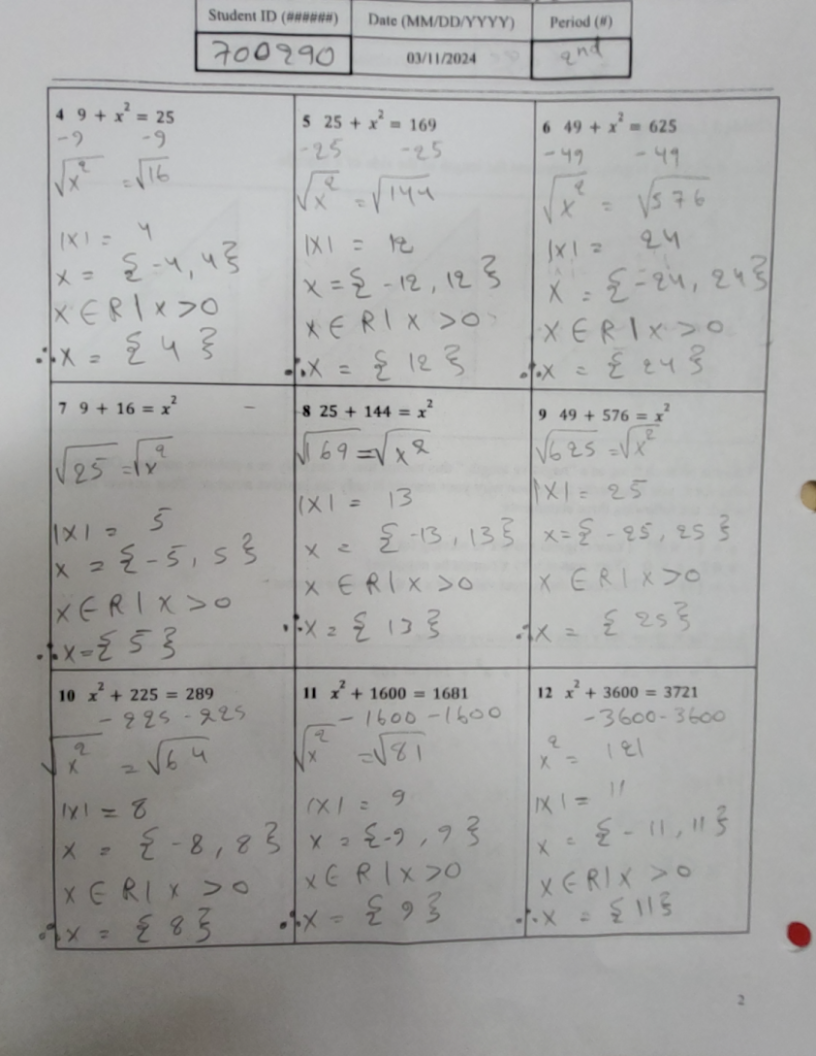 Student ID (######) Date (MM/DD/YYYY) Period (#)
700290 03/11/2024 2nd
4 9 + x² = 25
-9 -9
√x² = √16
|x| = 4
x = {-4, 4}
x ∈ R | x > 0
∴ x = {4}
5 25 + x² = 169
-25 -25
√x² = √144
|x| = 12
x = {-12, 12}
x ∈ R | x > 0
∴ x = {12}
6 49 + x² = 625
-49 -49
√x² = √576
|x| = 24
x = {-24, 24}
x ∈ R | x > 0
∴ x = {24}
7 9 + 16 = x²
√25 = √x²
|x| = 5
x = {-5, 5}
x ∈ R | x > 0
∴ x = {5}
8 25 + 144 = x²
√169 = √x²
|x| = 13
x = {-13, 13}
x ∈ R | x > 0
∴ x = {13}
9 49 + 576 = x²
√625 = √x²
|x| = 25
x = {-25, 25}
x ∈ R | x > 0
∴ x = {25}
10 x² + 225 = 289
-225 -225
√x² = √64
|x| = 8
x = {-8, 8}
x ∈ R | x > 0
∴ x = {8}
11 x² + 1600 = 1681
-1600 -1600
√x² = √81
|x| = 9
x = {-9, 9}
x ∈ R | x > 0
∴ x = {9}
12 x² + 3600 = 3721
-3600 -3600
x² = 121
|x| = 11
x = {-11, 11}
x ∈ R | x > 0
∴ x = {11}
2